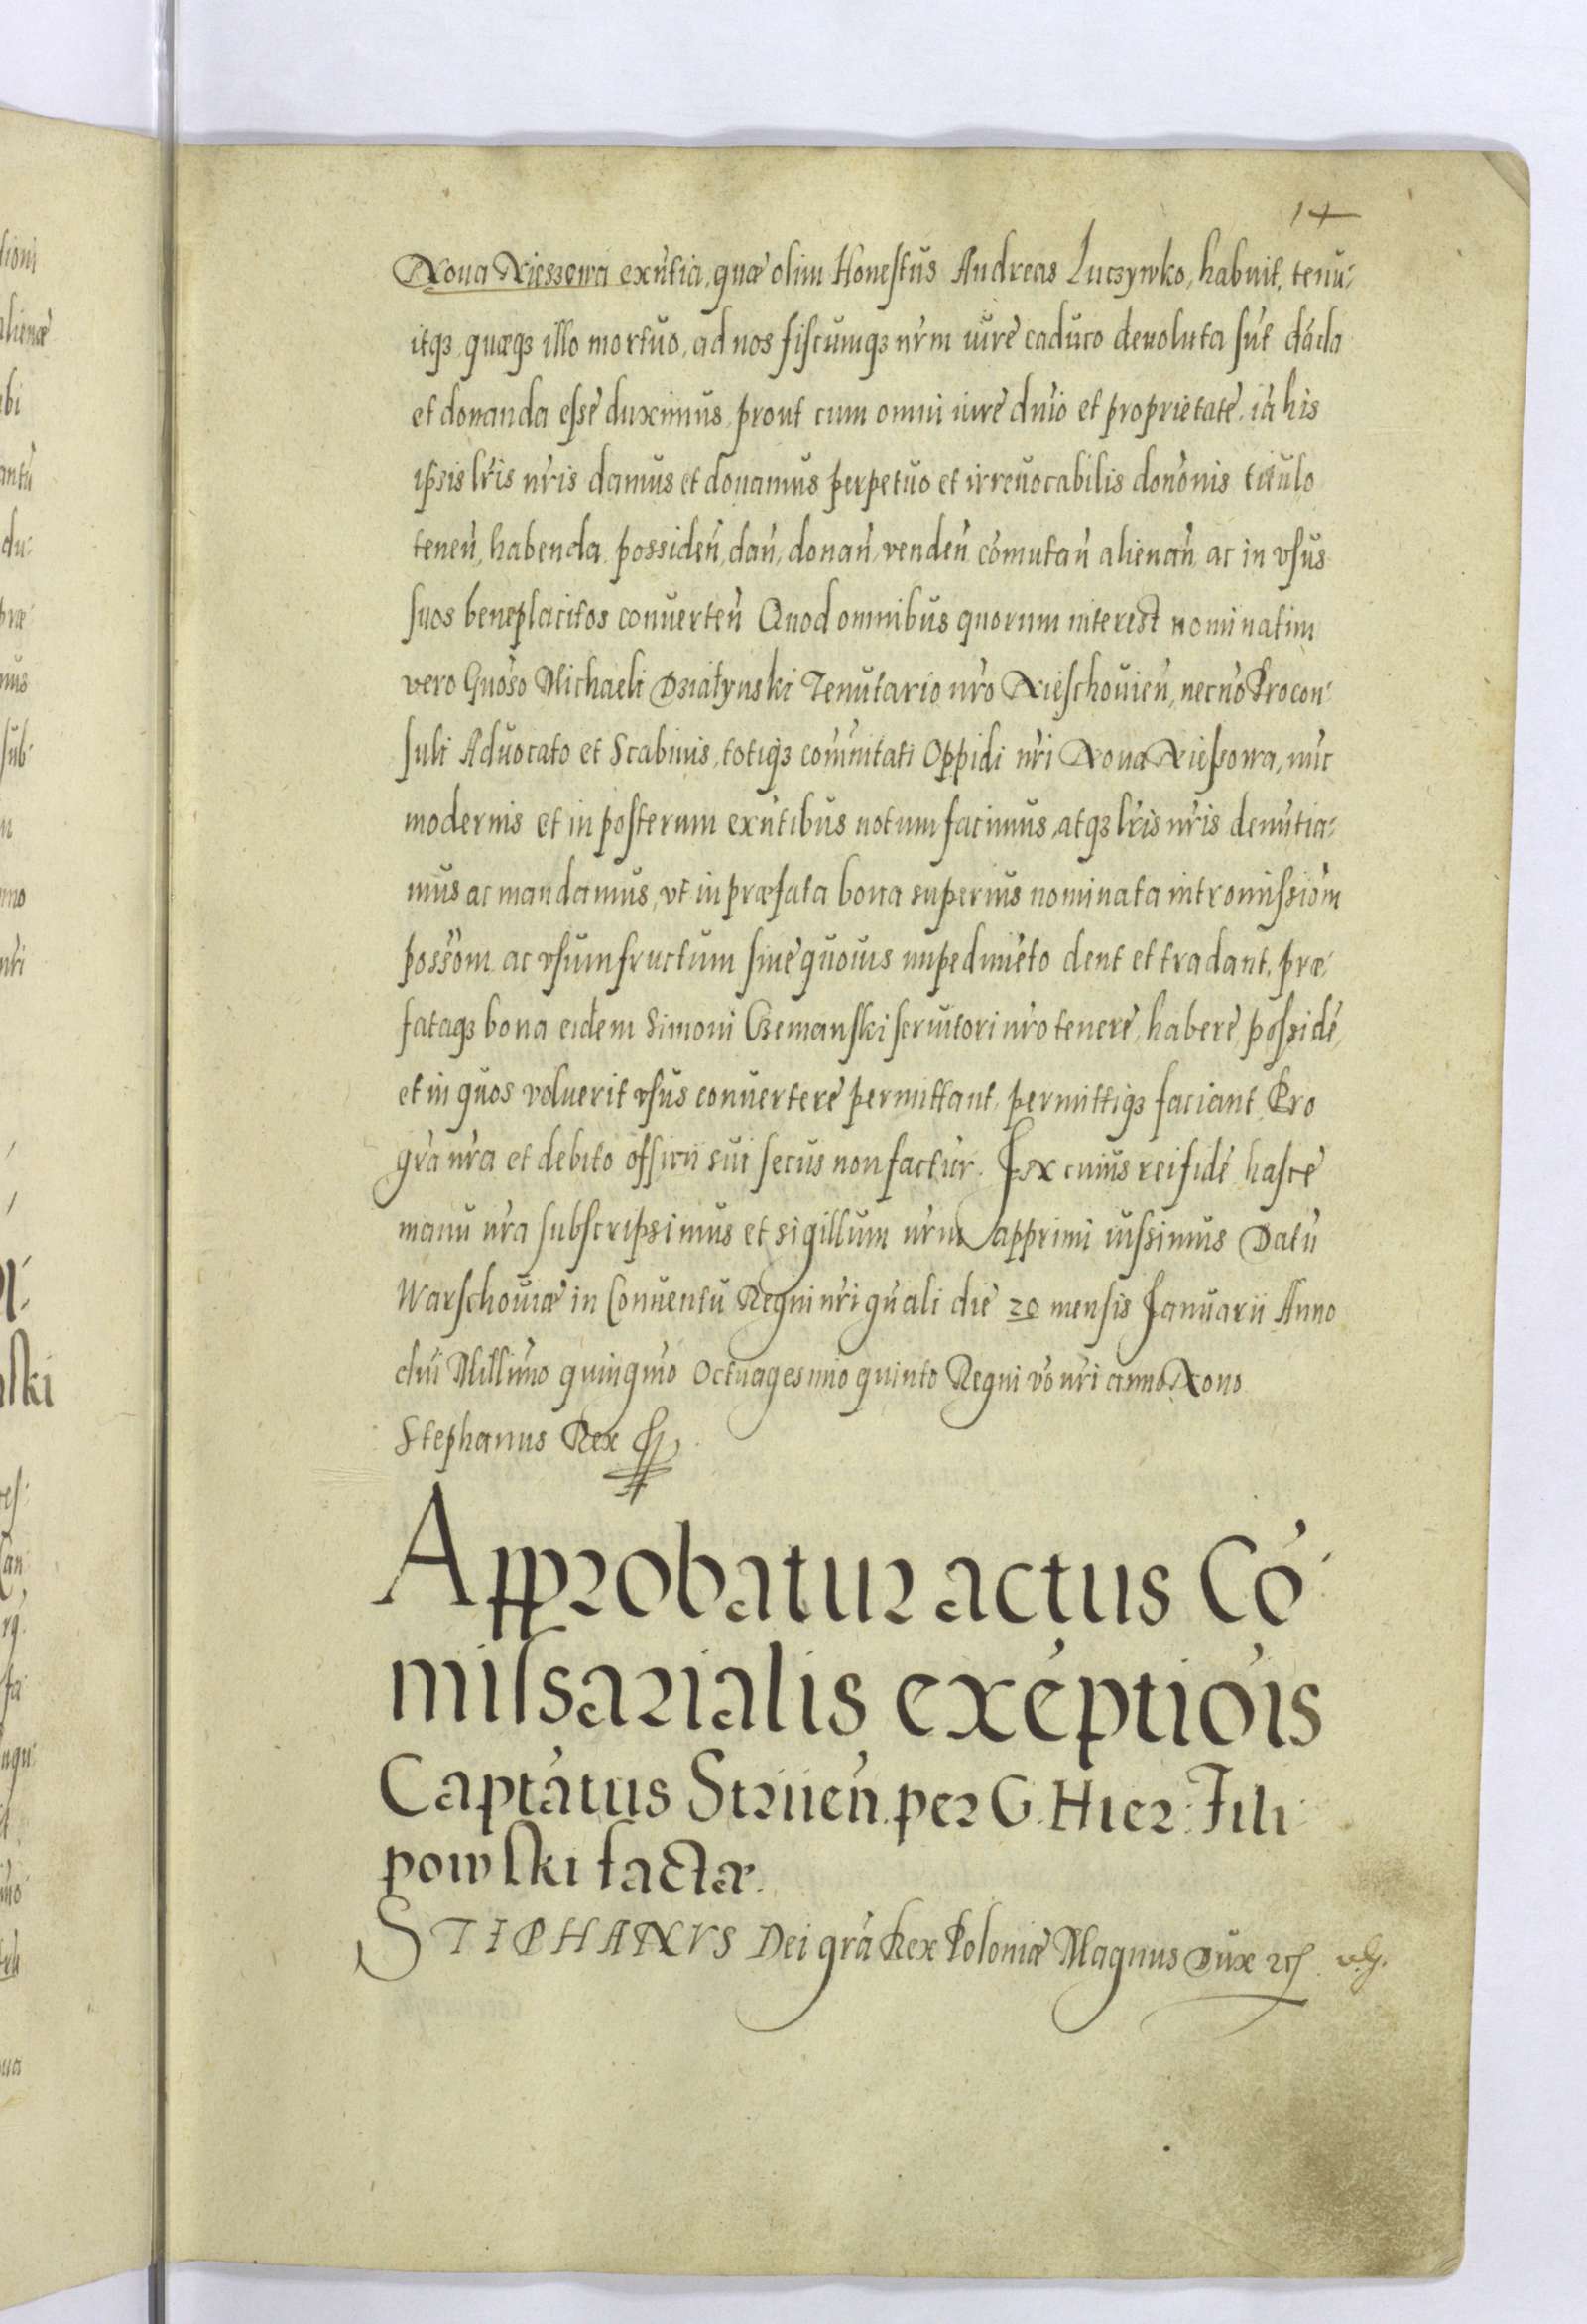 14
Noua Nieszewa exn̄tia, quæ olim Honestus Andreas Luczywko, habuit, tenu-
itqȝ, quæqȝ illo mortuo, ad nos fiscumqȝ nr̄m iure caduco deuoluta sūt dāda
et donanda esse duximus, prout cum omni iure dn̄io et proprietate, iā his
ipsis lr̄is nr̄is damus et donamus perpetuo et irreuocabilis donōnis titulo
tenen̄, habenda, possiden̄, dan̄, donan̄, venden̄ cōmutan̄ alienan̄, ac in vsus
suos beneplacitos conuerten̄ Quod omnibus quorum interest nominatim
vero Gnōso Michaeli Dzialynski Tenutario nr̄o Nieschouien̄, necnō Procon-
suli Aduocato et Scabinis, totiqȝ com̄nitati Oppidi nr̄i Noua Nieszowa, nūc
modernis et in posterum exn̄tibus notum facimus, atqȝ lr̄is nr̄is denūtia-
mus ac mandamus, vt in præfata bona superius nominata intromissiōm
possōm ac vsumfructum sine quouis impedimēto dent et tradant, præ-
fataqȝ bona eidem Simoni Czemanski seruitori nr̄o tenere, habere, possidē,
et in quos voluerit vsus conuertere permittant, permittiqȝ faciant Pro
gr̄a nr̄a et debito officii sui secus non factur̄. In cuius rei fidē hasce
manu nr̄a subscripsimus et sigillum nr̄m apprimi iussimus Datū
Warschouiæ in Conuentu Regni nr̄i gn̄ali die 20 mensis Januarii Anno
dn̄i Millimo quingmo Octuagesimo quinto Regni vō nr̄i anno Nono
Stephanus Rex
Approbatur actus Cō-
missarialis exēptiōis
Captātus Strijen̄. per G. Hier: Fili-
powski factæ.
STEPHANVS Dei gr̄a Rex Poloniæ Magnus Dux